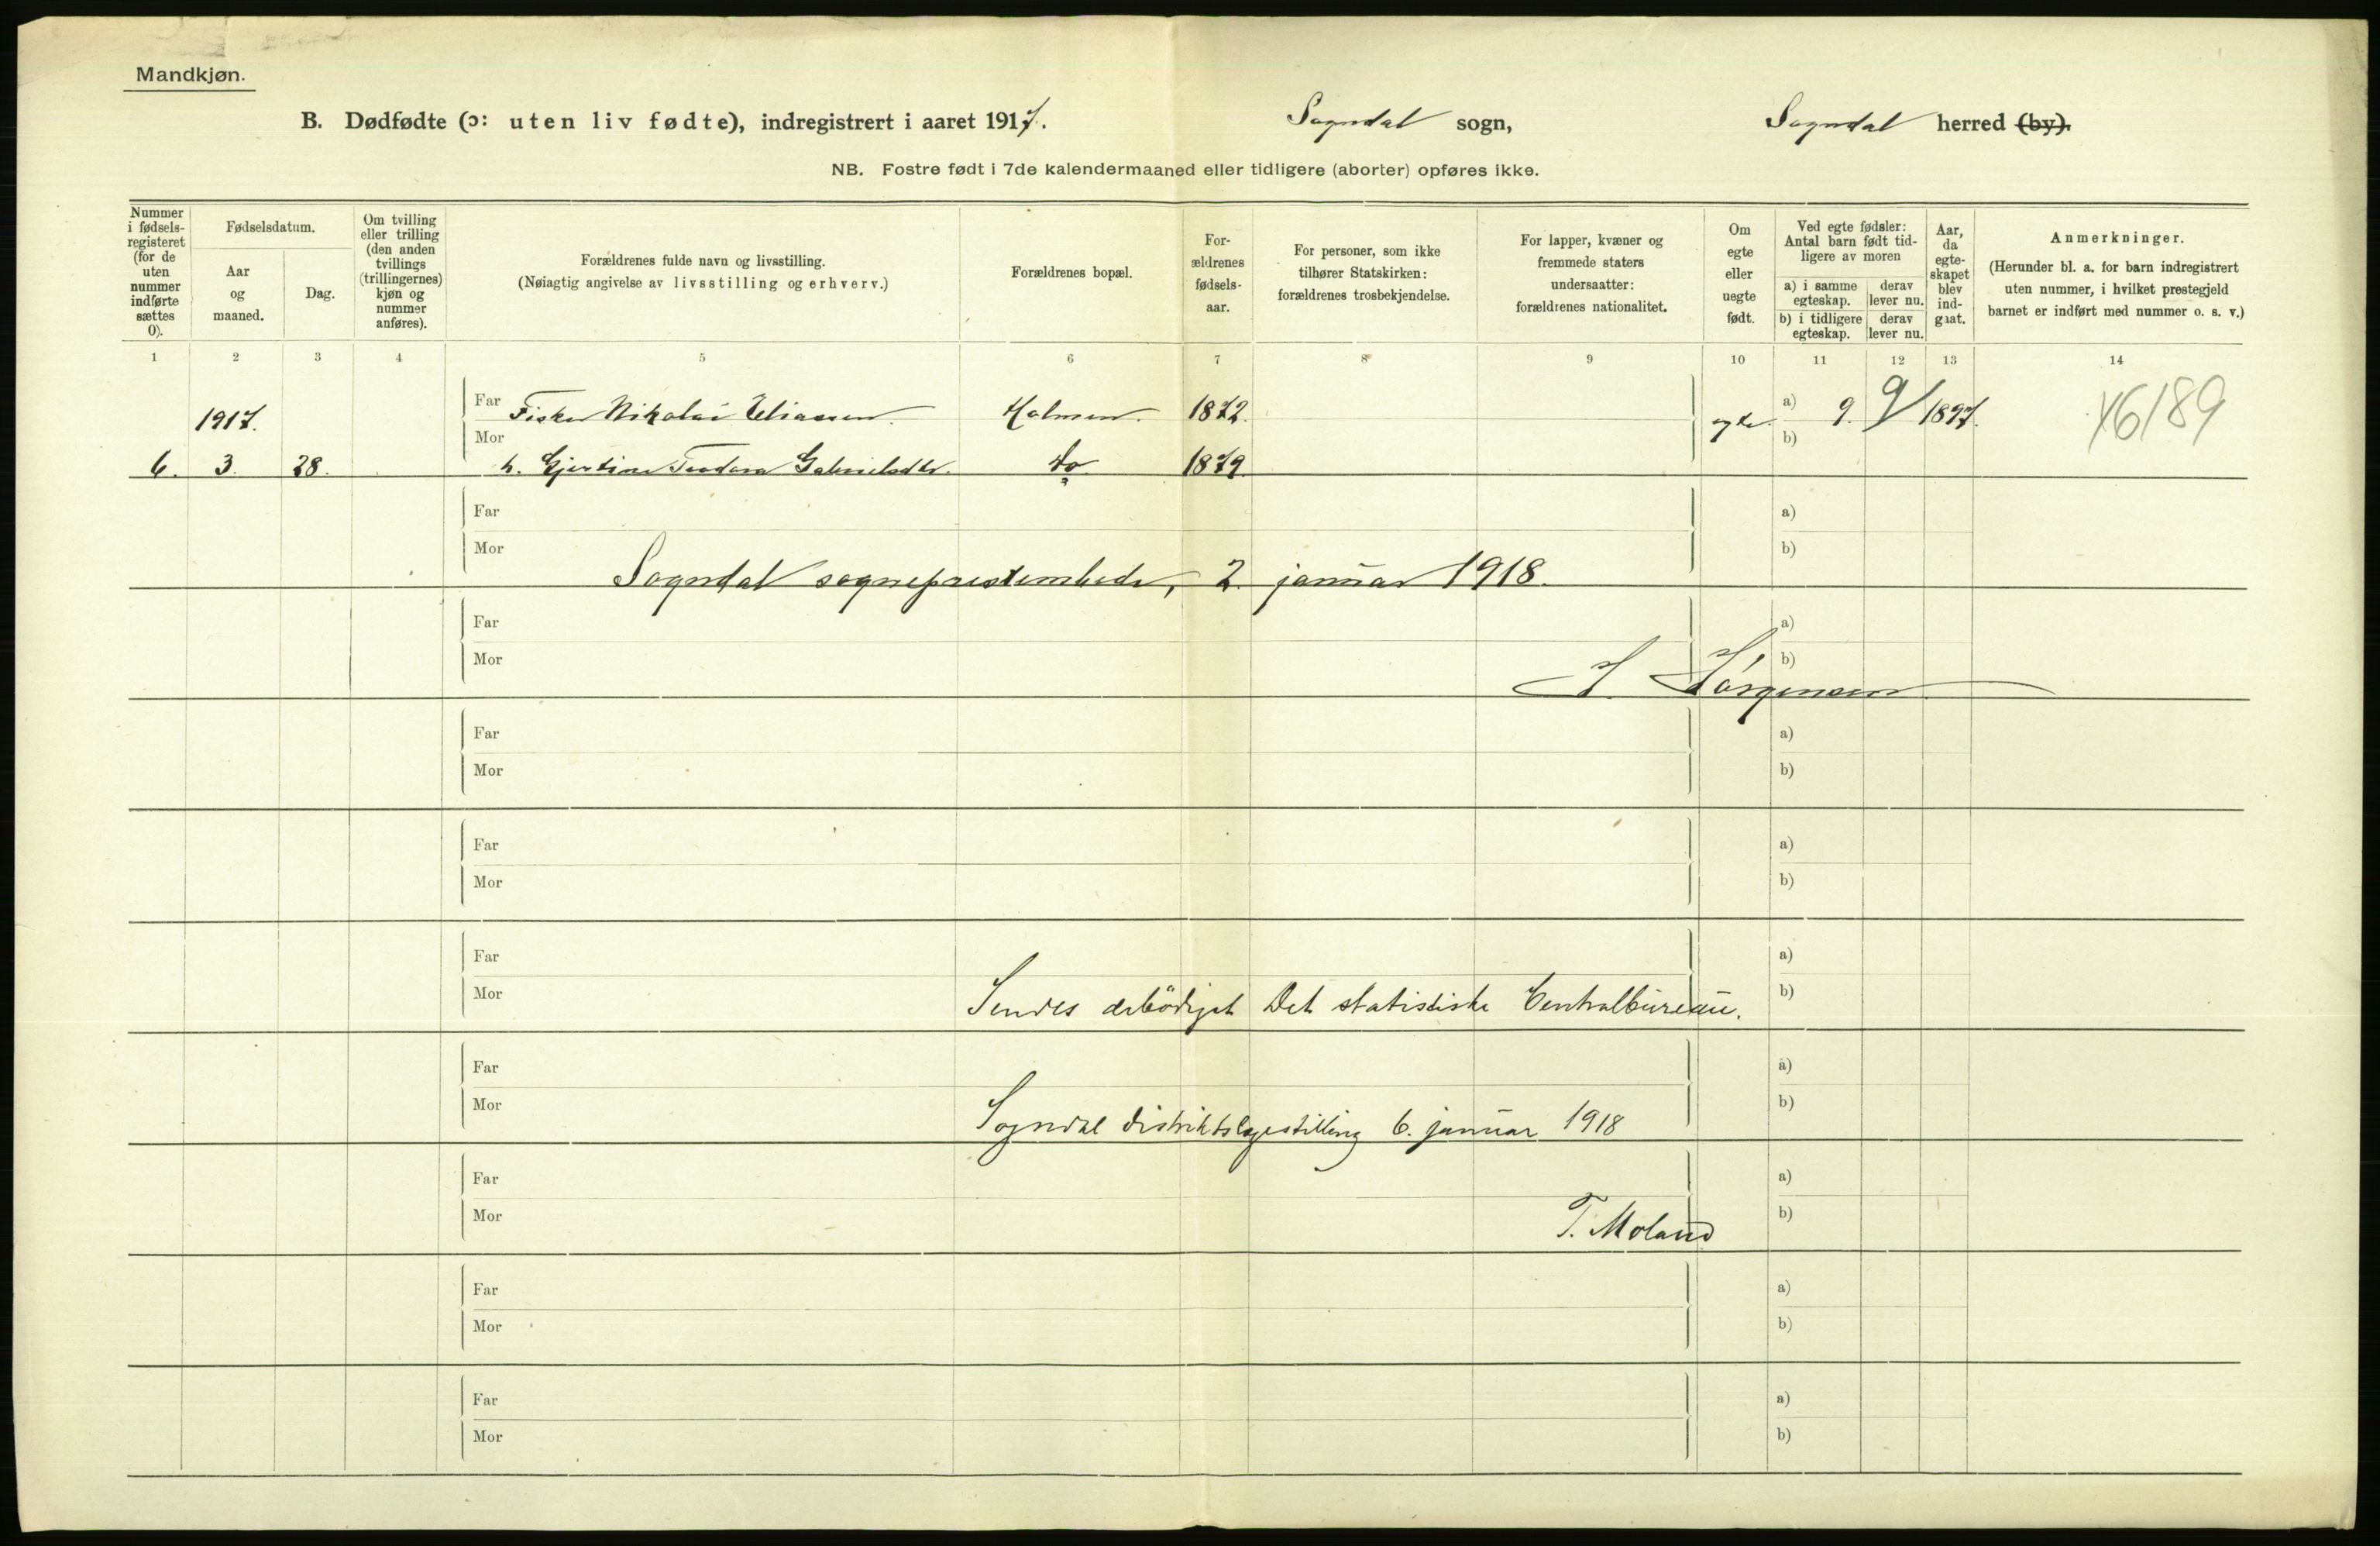 Mandkjøn.
B. Dødfødte (ɔ: uten liv fødte), indregistrert i aaret 1917. Sogndal sogn, Sogndal herred (by).
NB. Fostre født i 7de kalendermaaned eller tidligere (aborter) opføres ikke.
Nummer i fødsels-registeret (for de uten nummer indførte sættes 0).
Fødselsdatum.
Aar og maaned.
Dag.
Om tvilling eller trilling (den anden tvillings (trillingernes) kjøn og nummer anføres).
Forældrenes fulde navn og livsstilling.
(Nøiagtig angivelse av livsstilling og erhverv.)
Forældrenes bopæl.
For-ældrenes fødsels-aar.
For personer, som ikke tilhører Statskirken: forældrenes trosbekjendelse.
For lapper, kvæner og fremmede staters undersaatter: forældrenes nationalitet.
Om egte eller uegte født.
Ved egte fødsler: Antal barn født tid-ligere av moren
a) i samme egteskap. derav lever nu.
b) i tidligere egteskap. derav lever nu.
Aar, da egte-skapet blev ind-gaat.
Anmerkninger.
(Herunder bl. a. for barn indregistrert uten nummer, i hvilket prestegjeld barnet er indført med nummer o. s. v.)
1 2 3 4 5 6 7 8 9 10 11 12 13 14
1917. Far Fisker Nikolai Eliassen. Holmen. 1872. egte. a) 9. 9 1897. 
6. 3. 28. Mor h. Gjertine Teodora Gabrielsdtr. do 1879 b)
Far a)
Mor b)
Sogndal sogneprestembede, 2. januar 1918.
Far a)
Mor b)
Jörgensen
Far a)
Mor b)
Far a)
Mor b)
Far a)
Mor b)
Sendes ærbödigst Det statistiske Centralbureau.
Far a)
Mor b)
Sogndal distriktslægestilling 6. januar 1918
Far a)
Mor b)
T. Moland
Far a)
Mor b)
Far a)
Mor b)